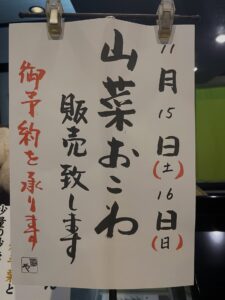 11月15日(土)16日(日)
山菜おこわ
販売致します
御予約を承ります